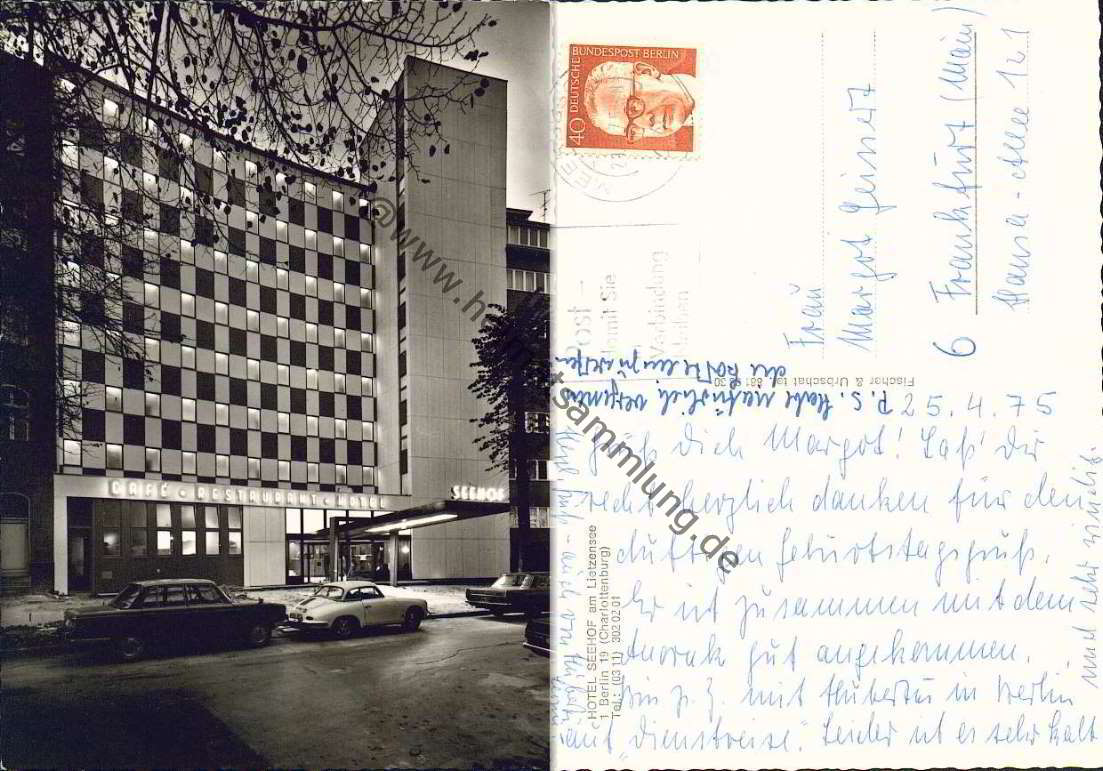 CAFÉ • RESTAURANT • HOTEL
SEEHOF
DEUTSCHE BUNDESPOST BERLIN
40
Post -
damit Sie
Verbindung
Frau
Margot Geissert
6 Frankfurt (Main)
Hansa-Allee 121
Fischer & Urbschat tel. 881
P.S. Habe natürlich vergessen
die Karte einzuwerfen
25.4.75
Grüß dich Margot! Laß' Dir
recht herzlich danken für den
duftigen Geburtstagsgruß.
Er ist zusammen mit dem
Anorak gut angekommen.
Bin z.Z. mit Hubertus in Berlin
auf "Dienstreise". Leider ist es sehr kalt
und sehr windig.
HOTEL SEEHOF am Lietzensee
1 Berlin 19 (Charlottenburg)
Tel.: (0311) 3020201
@www.heimatsammlung.de